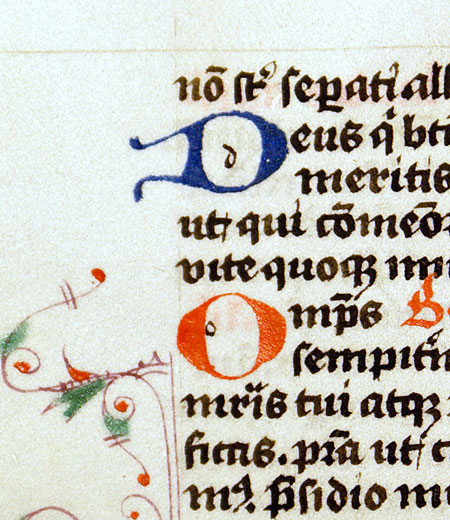 nō st' sepati all
Deus q̇ bti
meritis
ut qui cōmeōr
vite quoqꝫ
Omp̄s S
sempit'n
mr̄is tui atqꝫ
ficās. pr̄a ut
p̄sidio